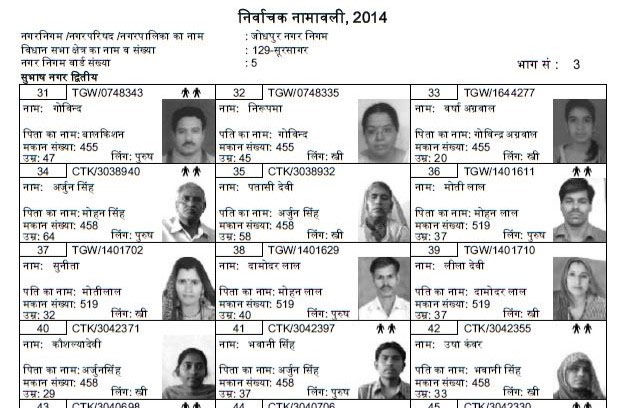 निर्वाचक नामावली, 2014
नगरनिगम /नगरपरिषद /नगरपालिका का नाम : जोधपुर नगर निगम
विधान सभा क्षेत्र का नाम व संख्या : 129-सूरसागर
नगर निगम वार्ड संख्या : 5
भाग सं : 3
सुभाष नगर द्वितीय
31 TGW/0748343
नाम: गोविन्द
पिता का नाम: बालकिशन
मकान संख्या: 455
उम्र: 47 लिंग: पुरुष
32 TGW/0748335
नाम: निरूपमा
पति का नाम: गोविन्द
मकान संख्या: 455
उम्र: 45 लिंग: स्त्री
33 TGW/1644277
नाम: वर्षा अग्रवाल
पिता का नाम: गोविन्द अग्रवाल
मकान संख्या: 455
उम्र: 20 लिंग: स्त्री
34 CTK/3038940
नाम: अर्जुन सिंह
पिता का नाम: मोहन सिंह
मकान संख्या: 458
उम्र: 64 लिंग: पुरुष
35 CTK/3038932
नाम: पतासी देवी
पति का नाम: अर्जुन सिंह
मकान संख्या: 458
उम्र: 58 लिंग: स्त्री
36 TGW/1401611
नाम: मोती लाल
पिता का नाम: मोहन लाल
मकान संख्या: 519
उम्र: 37 लिंग: पुरुष
37 TGW/1401702
नाम: सुनीता
पति का नाम: मोतीलाल
मकान संख्या: 519
उम्र: 32 लिंग: स्त्री
38 TGW/1401629
नाम: दामोदर लाल
पिता का नाम: मोहन लाल
मकान संख्या: 519
उम्र: 40 लिंग: पुरुष
39 TGW/1401710
नाम: लीला देवी
पति का नाम: दामोदर लाल
मकान संख्या: 519
उम्र: 37 लिंग: स्त्री
40 CTK/3042371
नाम: कौशल्यादेवी
पिता का नाम: अर्जुनसिंह
मकान संख्या: 458
उम्र: 29 लिंग: स्त्री
41 CTK/3042397
नाम: भवानी सिंह
पिता का नाम: अर्जुन सिंह
मकान संख्या: 458
उम्र: 37 लिंग: पुरुष
42 CTK/3042355
नाम: उषा कंवर
पति का नाम: भवानी सिंह
मकान संख्या: 458
उम्र: 33 लिंग: स्त्री
43 CTK/3040698
44 CTK/3040706
45 CTK/3042330